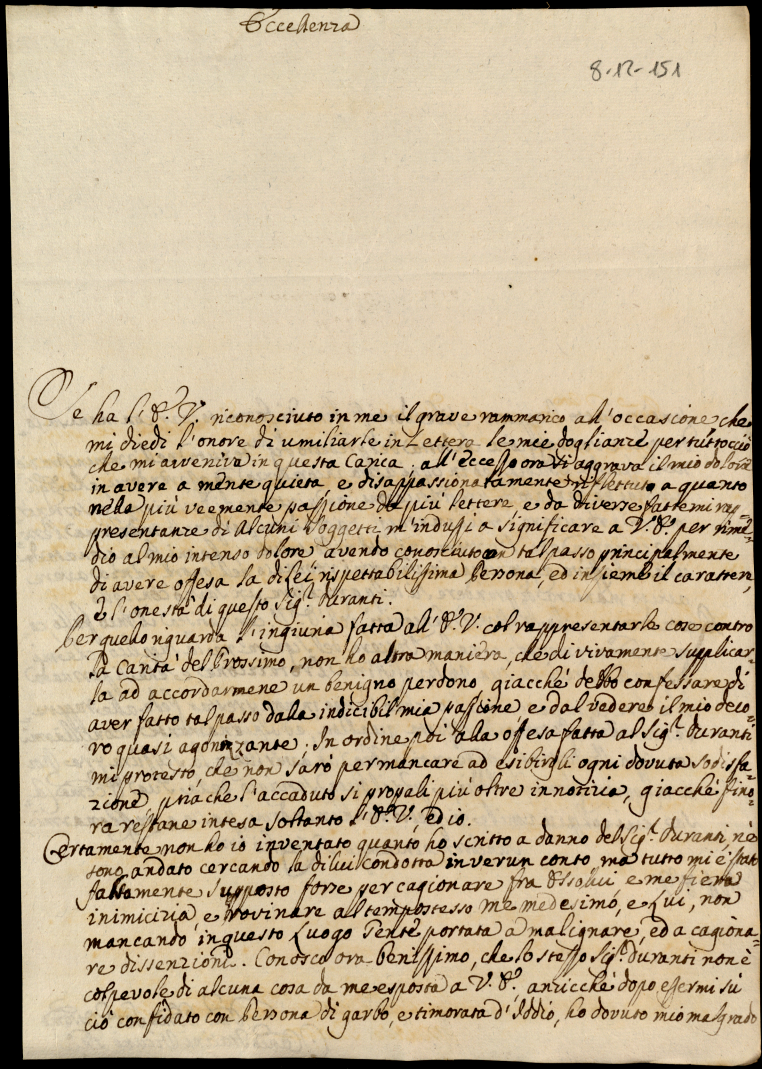 Eccellenza
8-12-151
Se ha l'E. V. riconosciuto in me il grave rammarico all'occasione, che
mi diedi l'onore di umiliarle in Lettere le mie doglianze per tuttociò
che mi avveniva in questa Carica; all'eccesso ora si aggrava il mio dolore
in avere a mente quieta e disappassionatamente riflettuto a quanto
nella più veemente passione da più lettere, e da diverse fattemi rap=
presentanze di alcuni soggetti m'indussi a significare a V. E. per rime=
dio al mio intenso dolore avendo conosciuto con tal passo principalmente
di avere offesa la di lei rispettabilissima Persona, ed insieme il carattere,
e l'onestà di questo Sig.r Duranti.
Per quello riguarda l'ingiuria fatta all'E. V. col rappresentarle cose contro
la Carità del Prossimo, non ho altra maniera, che di vivamente supplicar=
la ad accordarmene un benigno perdono, giacché debbo confessare di
aver fatto tal passo dalla indicibil mia passione e dal vedere il mio deco=
ro quasi agonizzante. In ordine poi alla offesa fatta al Sig.r Duranti
mi protesto, che non sarò per mancare ad esibirgli ogni dovuta sodisfa=
zione, pria che l'accaduto si propali più oltre in notizia, giacché fino=
ra restane intesa soltanto l'E. V., ed io.
Certamente non ho io inventato quanto ho scritto a danno del Sig.r Duranti, nè
sono andato cercando la di lui condotta in verun conto, ma tutto mi è stato
falsamente supposto forse per cagionare fra Esso lui, e me fiera
inimicizia, e rovinare al tempo stesso me medesimo, e Lui, non
mancando in questo Luogo Gente portata a malignare, ed a cagiona=
re dissenzioni. Conosco ora benissimo, che lo stesso Sig.r Duranti non è
colpevole di alcuna cosa da me esposta a V. E., anzicché dopo essermi su
ciò confidato con Persona di garbo, e timorata d'Iddio, ho dovuto mio malgrado